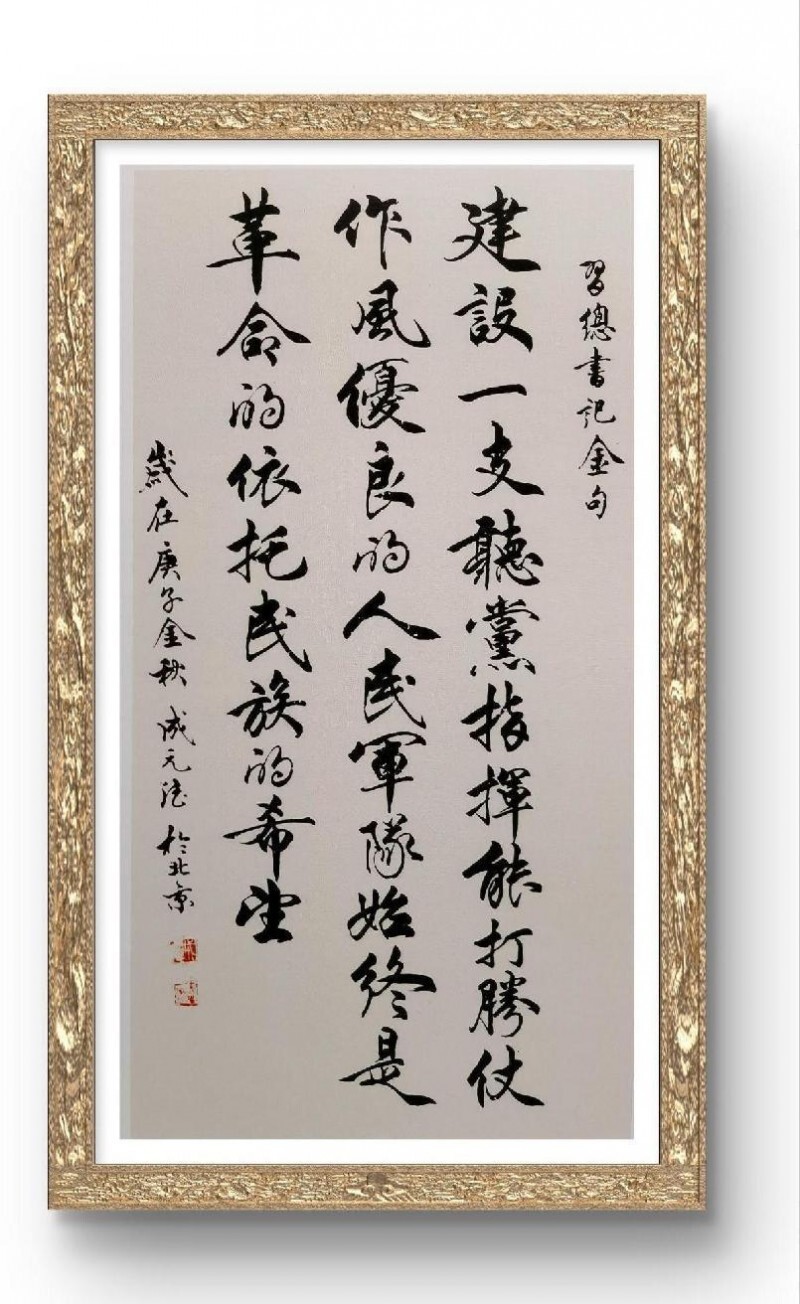 習總書记金句
建設一支聽黨指揮能打勝仗
作風優良的人民軍隊始終是
革命的依托民族的希望
歲在庚子金秋成元法於北京